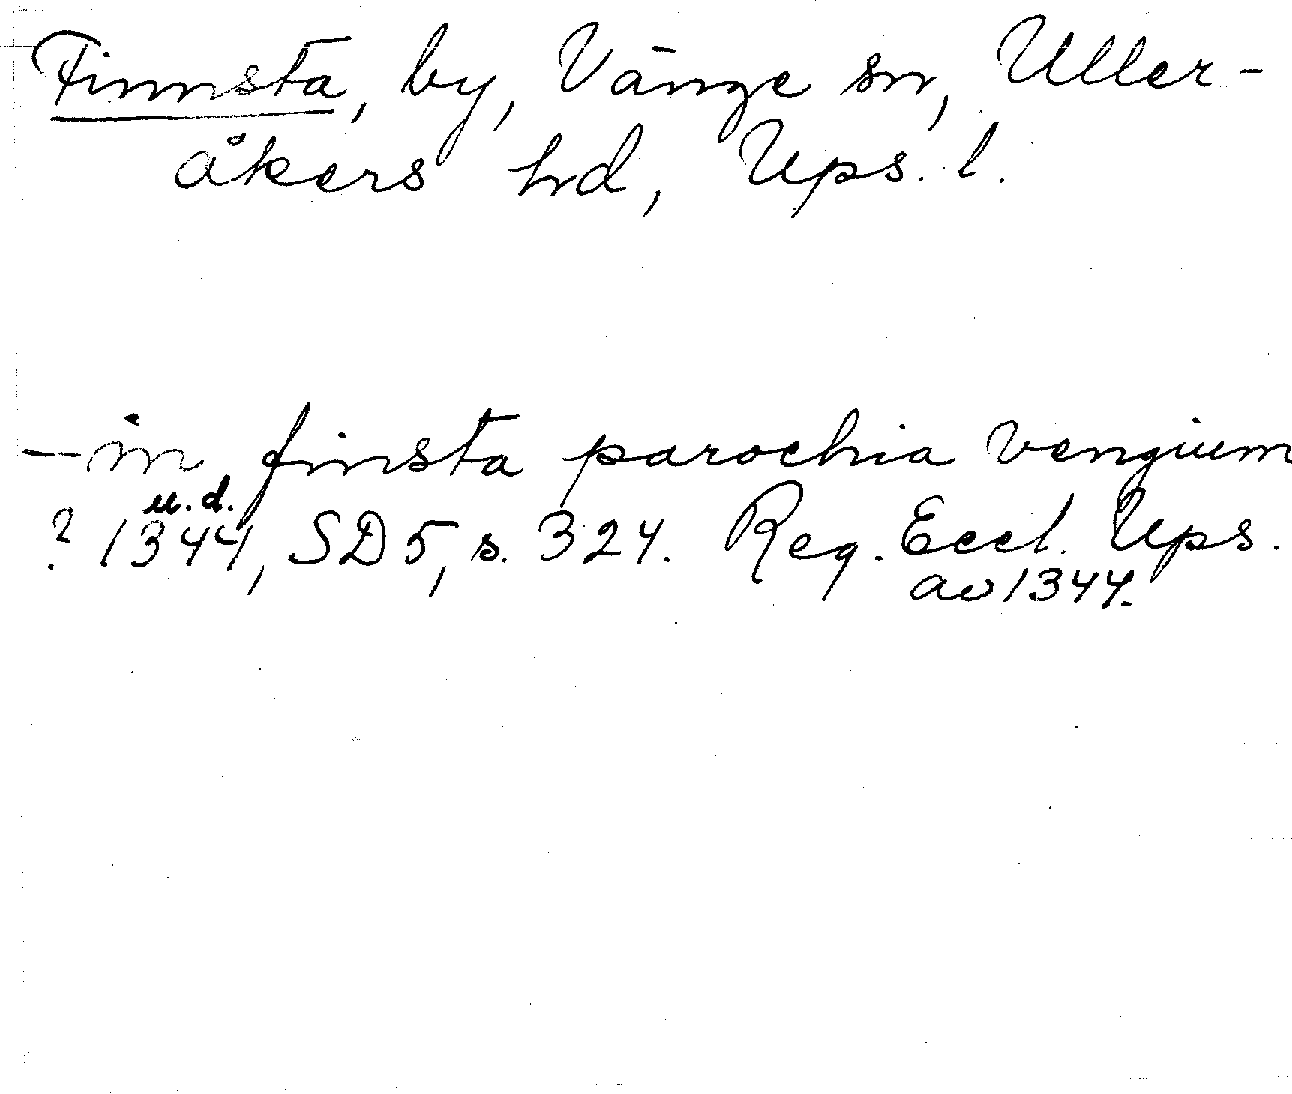 Finnsta, by, Vänge sn, Uller-
åkers hd, Ups. l.
- in finsta parochia vengium
u.d.
? 1344, SD 5, s. 324. Reg. Eccl. Ups.
av 1344.